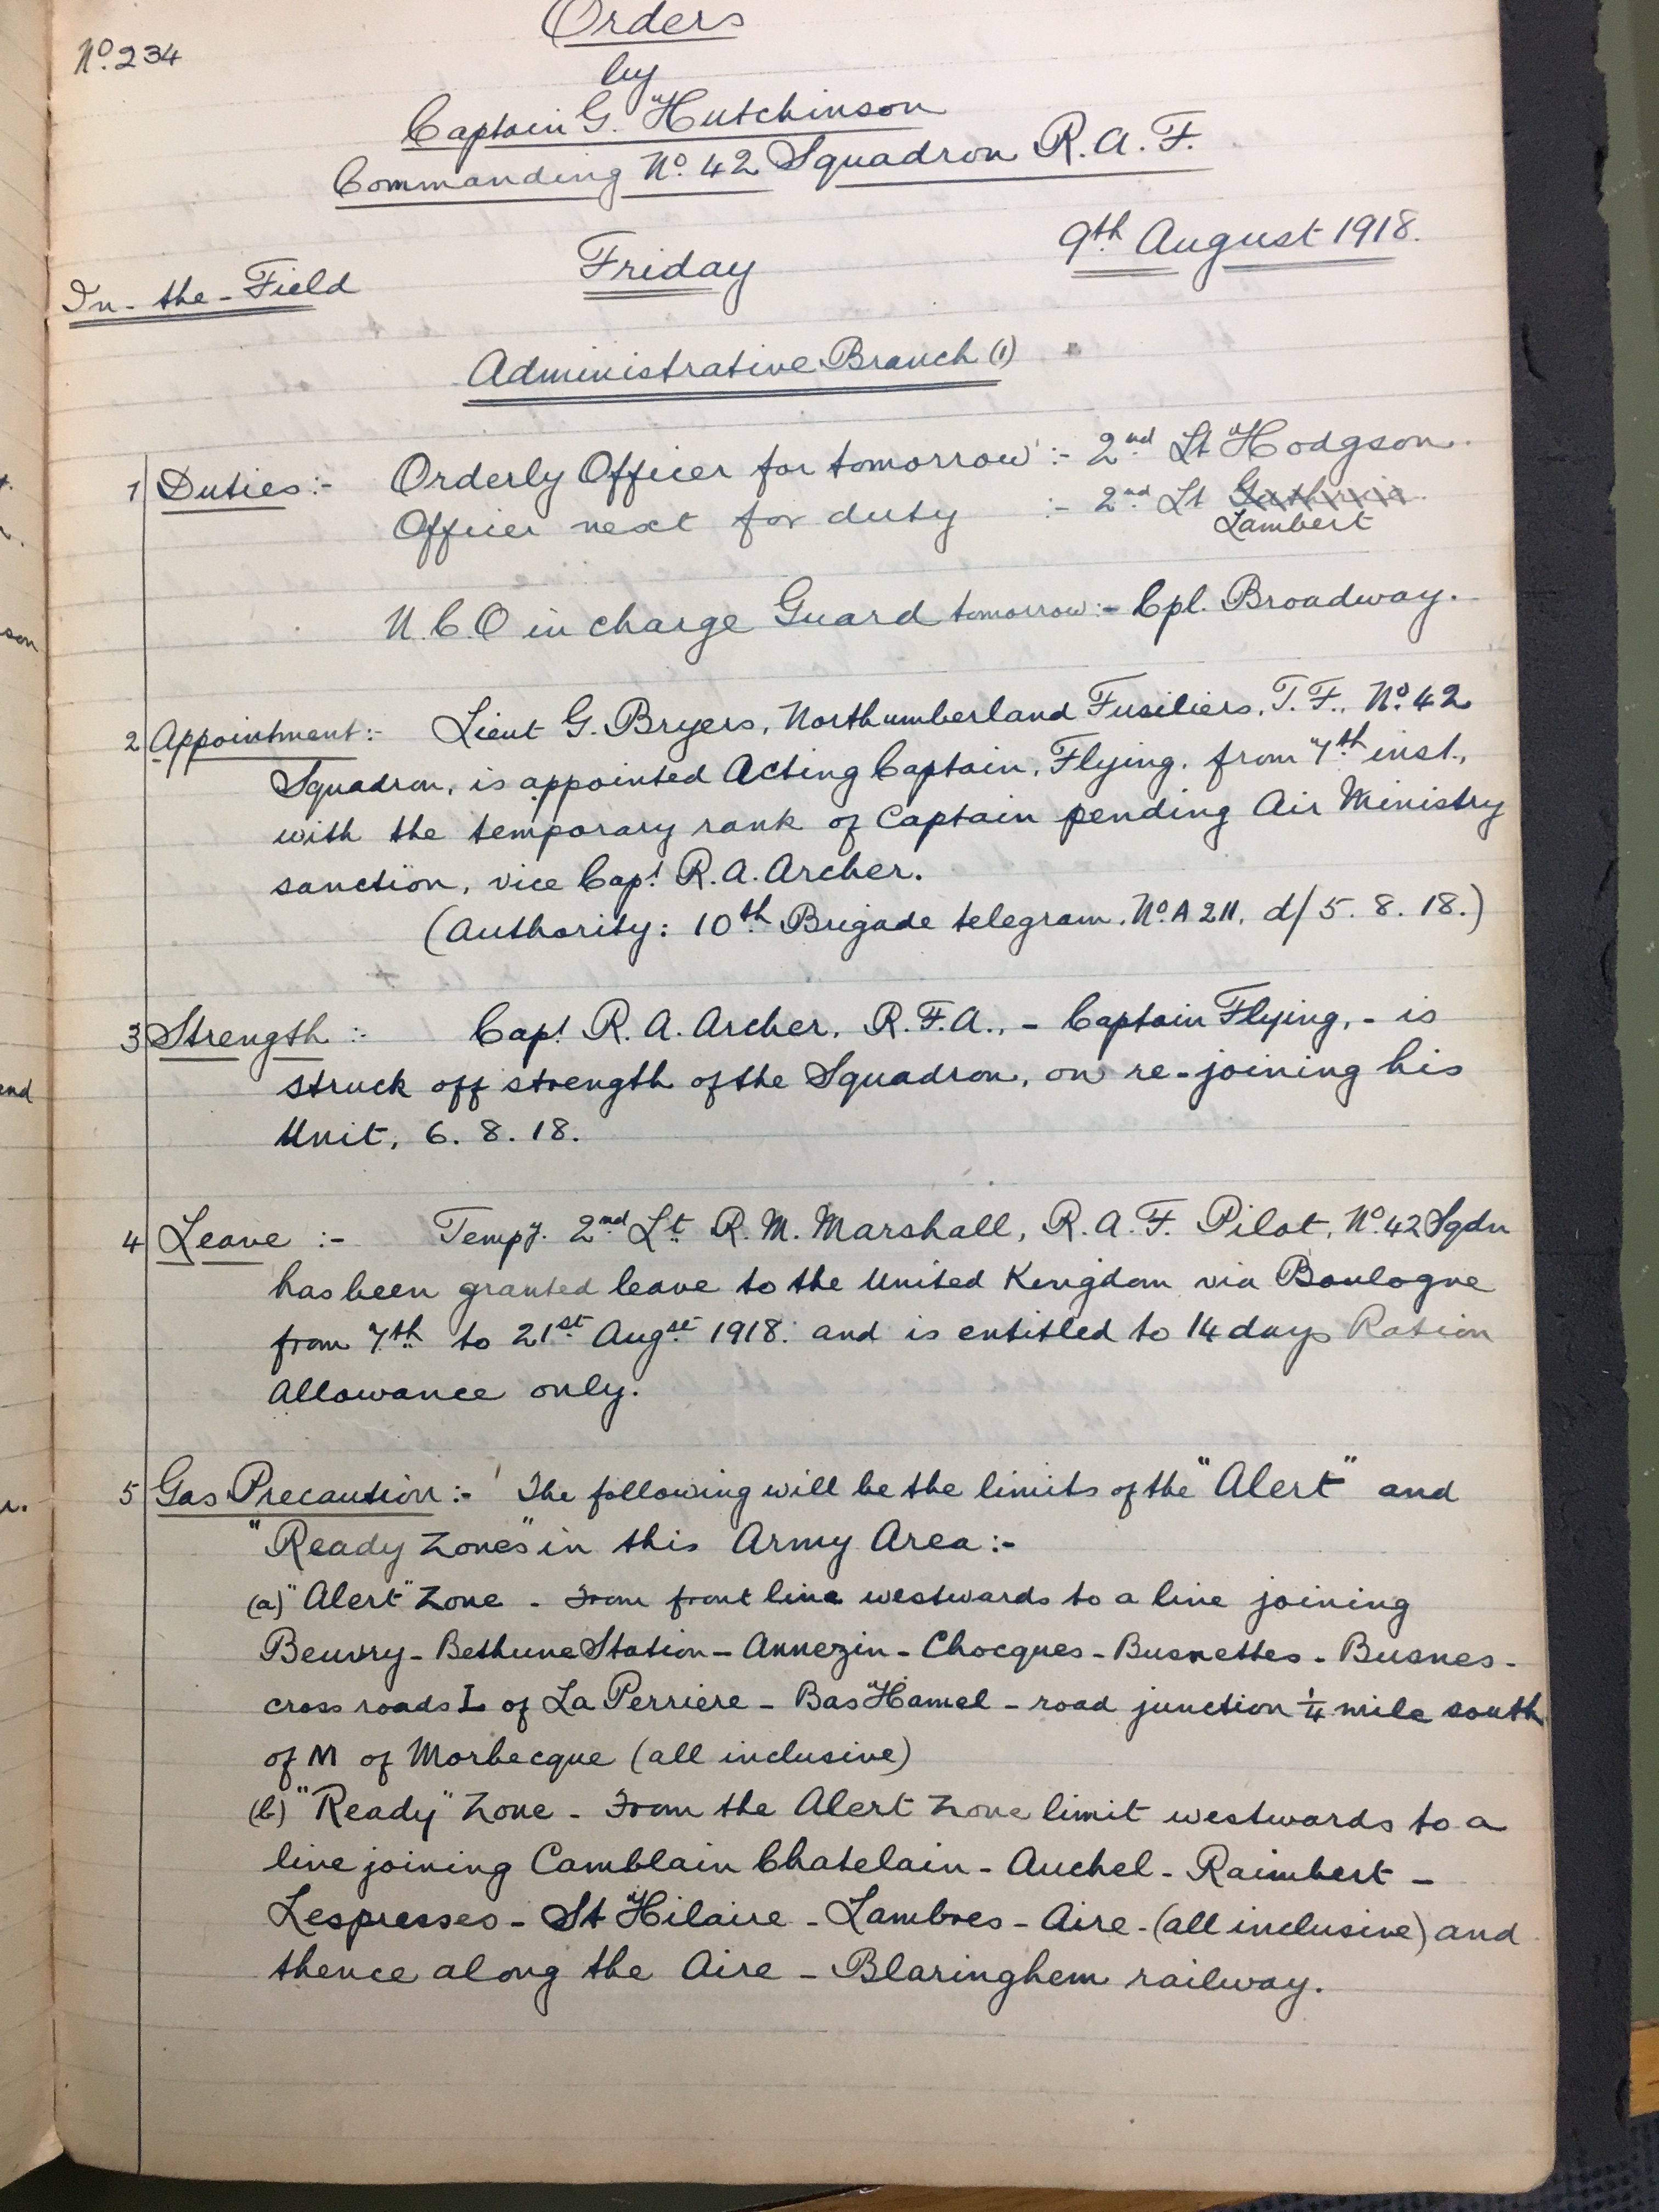 Orders
Nº 234
by
Captain G. Hutchinson
Commanding Nº 42 Squadron R.A.F.
9th August 1918.
Friday
In-the-Field
Administrative Branch (1)
1 Duties:- Orderly Officer for tomorrow :- 2nd Lt Hodgson.
Officer next for duty :- 2nd Lt
Lambert
N.C.O in charge Guard tomorrow:- Cpl. Broadway.
2 Appointment:- Lieut G. Bryers, Northumberland Fusiliers, T.F., Nº 42
Squadron, is appointed Acting Captain, Flying, from 7th inst.,
with the temporary rank of Captain pending Air Ministry
sanction, vice Capt R.A. Archer.
(Authority: 10th Brigade telegram. Nº A 211, d/ 5. 8. 18.)
3 Strength :- Capt R. A. Archer, R.F.A., - Captain Flying, - is
struck off strength of the Squadron, on re-joining his
Unit, 6. 8. 18.
4 Leave :- Tempy. 2nd Lt R. M. Marshall, R.A.F. Pilot, Nº 42 Sqdn
has been granted leave to the United Kingdom via Boulogne
from 7th to 21st Augst 1918. and is entitled to 14 days Ration
Allowance only.
5 Gas Precaution:- The following will be the limits of the "Alert" and
"Ready Zones" in this Army Area:-
(a) "Alert" Zone - From front line westwards to a line joining
Beuvry - Bethune Station - Annezin - Chocques - Busnettes - Busnes -
cross roads L of La Perriere - Bas Hamel - road junction ¼ mile south
of M of Morbecque (all inclusive)
(b) "Ready" Zone - From the Alert Zone limit westwards to a
line joining Camblain Chatelain - Auchel - Raimbert -
Lespresses - St Hilaire - Lambres - Aire - (all inclusive) and
thence along the Aire - Blaringhem railway.